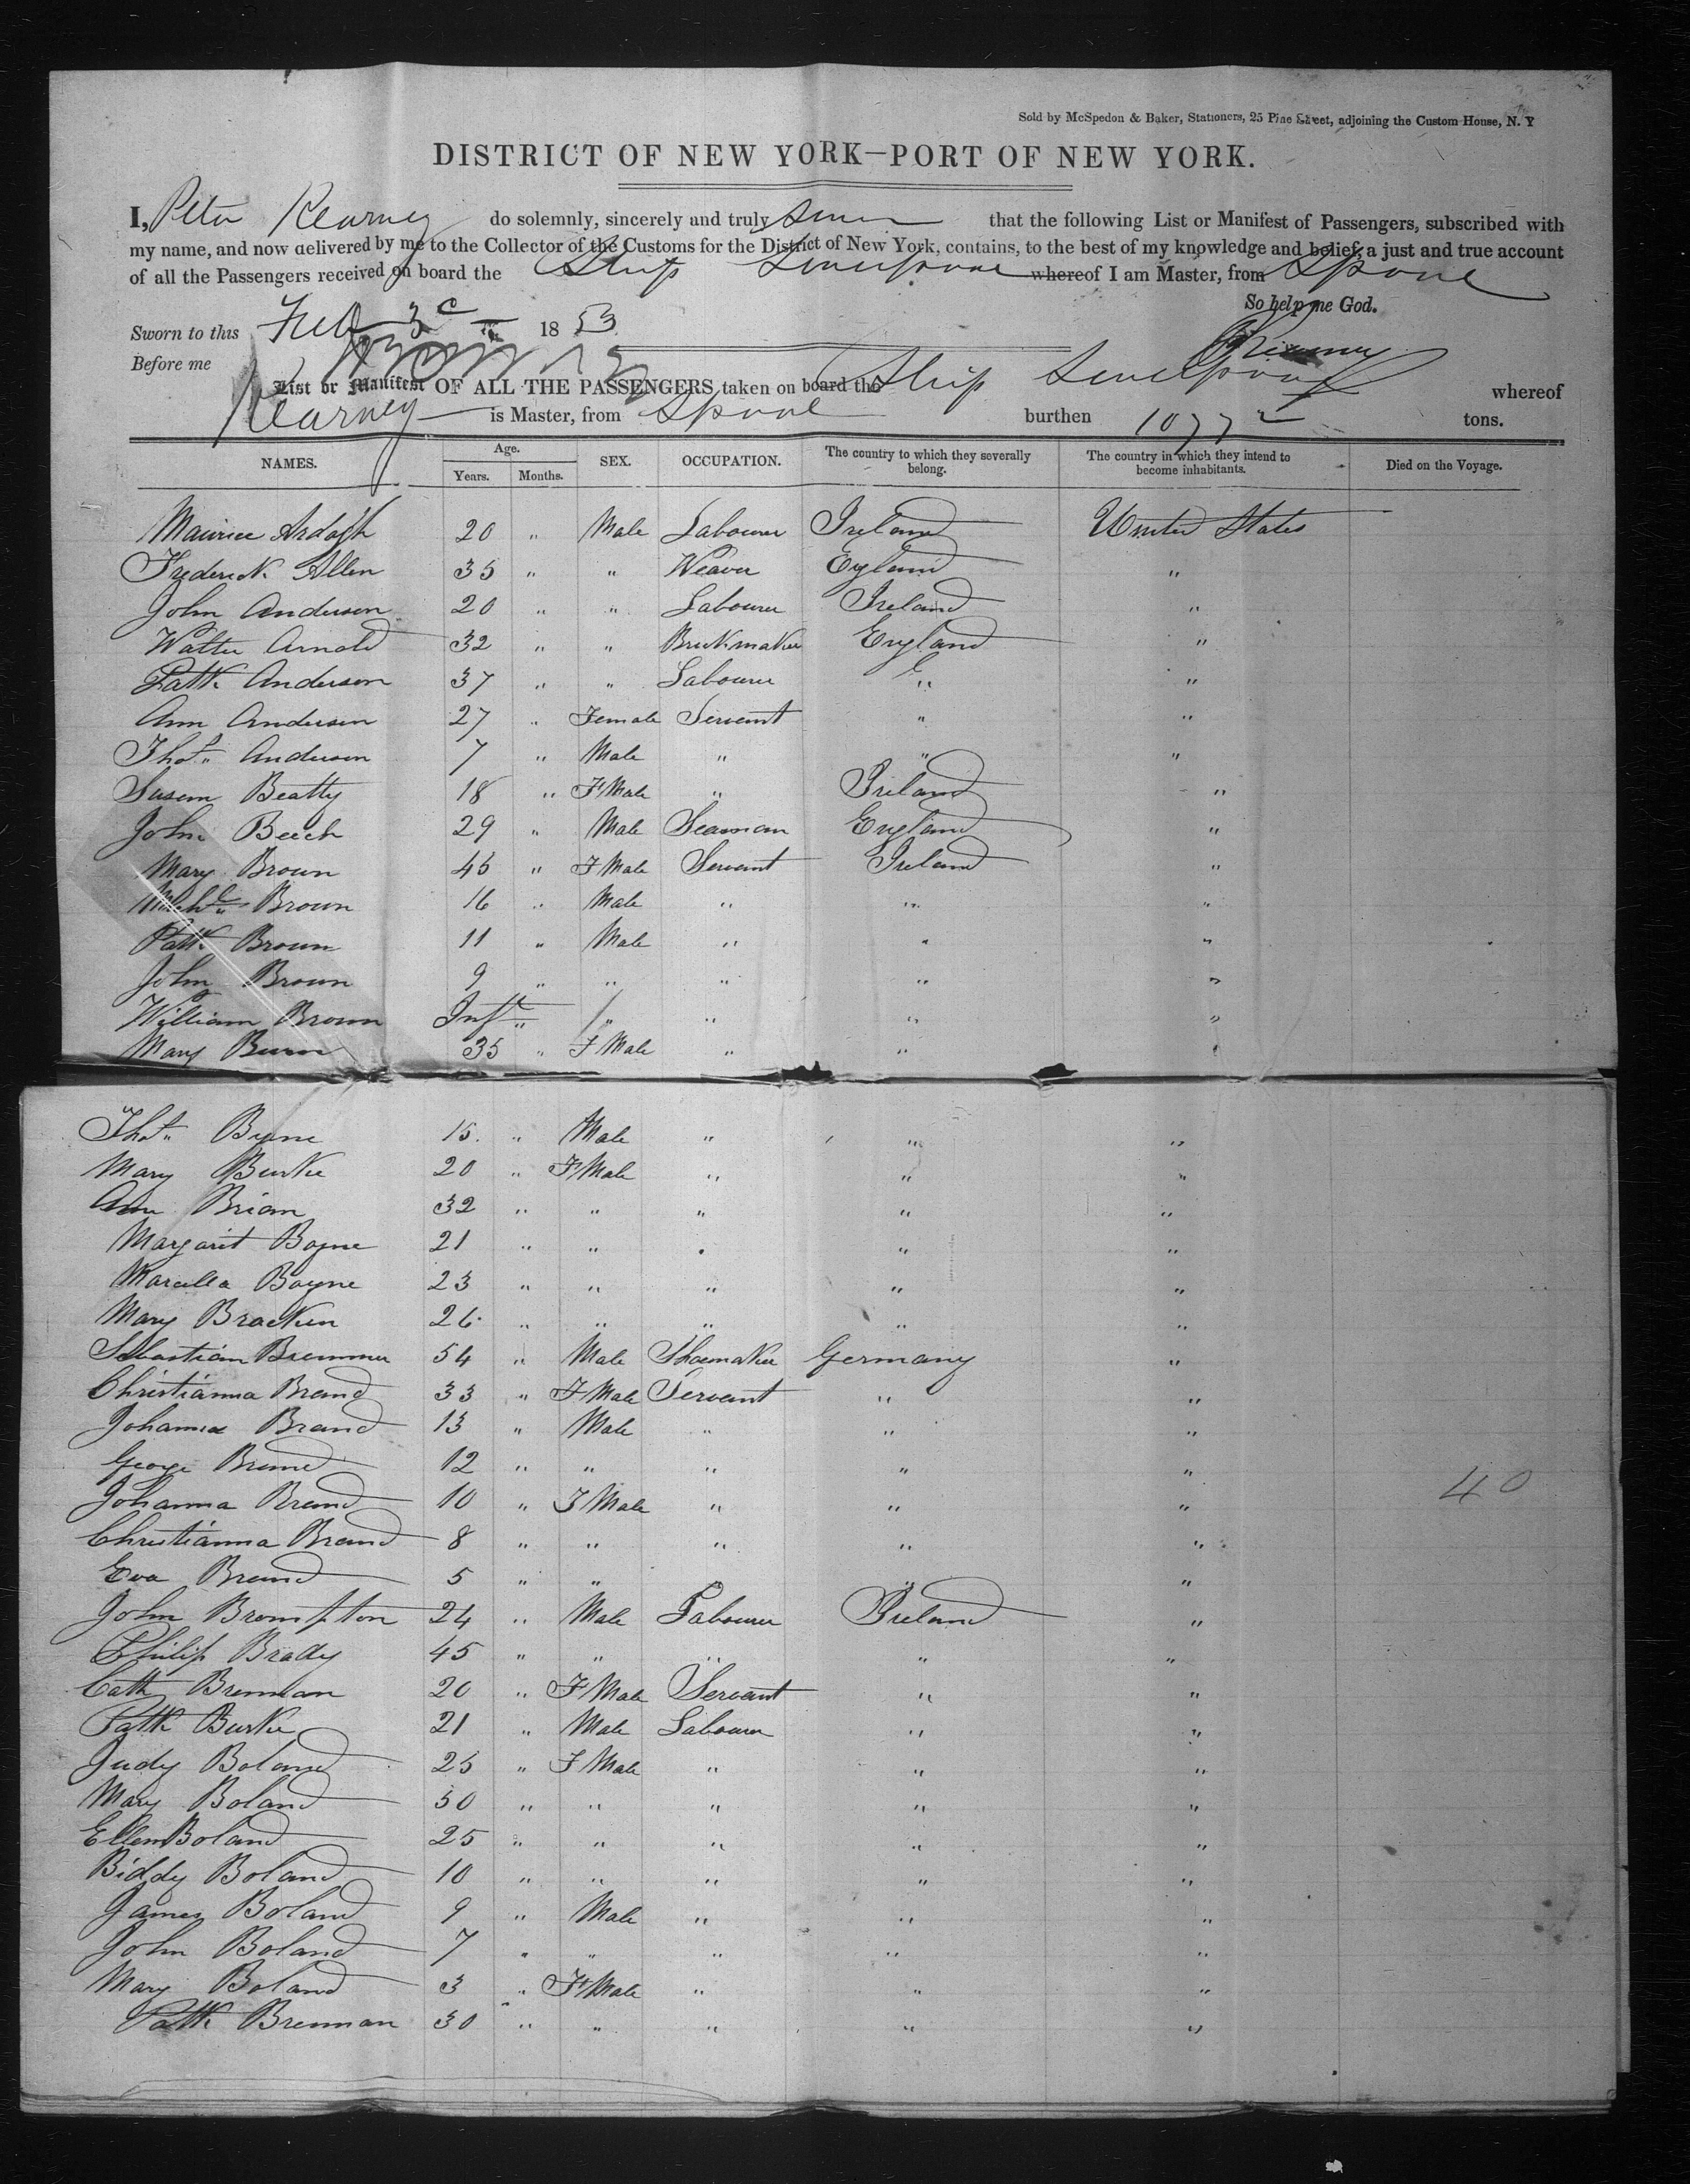 Sold by McSpedon & Baker, Stationers, 25 Pine Street, adjoining the Custom House, N. Y
DISTRICT OF NEW YORK—PORT OF NEW YORK.
I, Peter Kearney do solemnly, sincerely and truly swear that the following List or Manifest of Passengers, subscribed with
my name, and now delivered by me to the Collector of the Customs for the District of New York, contains, to the best of my knowledge and belief, a just and true account
of all the Passengers received on board the Ship Liverpool whereof I am Master, from Lpool
So help me God.
Sworn to this Feb 3d 1853
Before me
P Kearney
List or Manifest OF ALL THE PASSENGERS taken on board the Ship Liverpool whereof
Kearney is Master, from Lpool burthen 1077 tons.
NAMES. Age. Years. Months. SEX. OCCUPATION. The country to which they severally belong. The country in which they intend to become inhabitants. Died on the Voyage.
Maurice Ardagh 20 " Male Labourer Ireland United States
Frederick Allen 35 " " Weaver England "
John Anderson 20 " " Labourer Ireland "
Walter Arnold 32 " " Brickmaker England "
Patk Anderson 37 " " Labourer " "
Ann Anderson 27 " Female Servant " "
Thos. Anderson 7 " Male " " "
Susan Beatty 18 " F Male " Ireland "
John Beech 29 " Male Seaman England "
Mary Brown 45 " F Male Servant Ireland "
Michl Brown 16 " Male " " "
Patk Brown 11 " Male " " "
John Brown 9 " " " " "
William Brown Inft " " " " "
Mary 35 " F Male " " "
Thos. Byrne 15 " Male " " "
Mary Burke 20 " F Male " " "
Ann Brian 32 " " " " "
Margarit Boyne 21 " " " " "
Marcella Boyne 23 " " " " "
Mary Bracken 26 " " " " "
Sebastian Bremmer 54 " Male Shoemaker Germany "
Christianna Brand 33 " F Male Servant " "
Johanna Brand 13 " Male " " "
George Brand 12 " " " " "
Johanna Brand 10 " F Male " " "
40
Christianna Brand 8 " " " " "
Eva Brand 5 " " " " "
John Brompton 24 " Male Labourer Ireland "
Philip Brady 45 " " " " "
Cath Brennan 20 " F Male Servant " "
Patk Burke 21 " Male Labourer " "
Judy Boland 25 " F Male " " "
Mary Boland 50 " " " " "
Ellen Boland 25 " " " " "
Biddy Boland 10 " " " " "
James Boland 9 " Male " " "
John Boland 7 " " " " "
Mary Boland 3 " F Male " " "
Patk Brennan 30 " " " " "